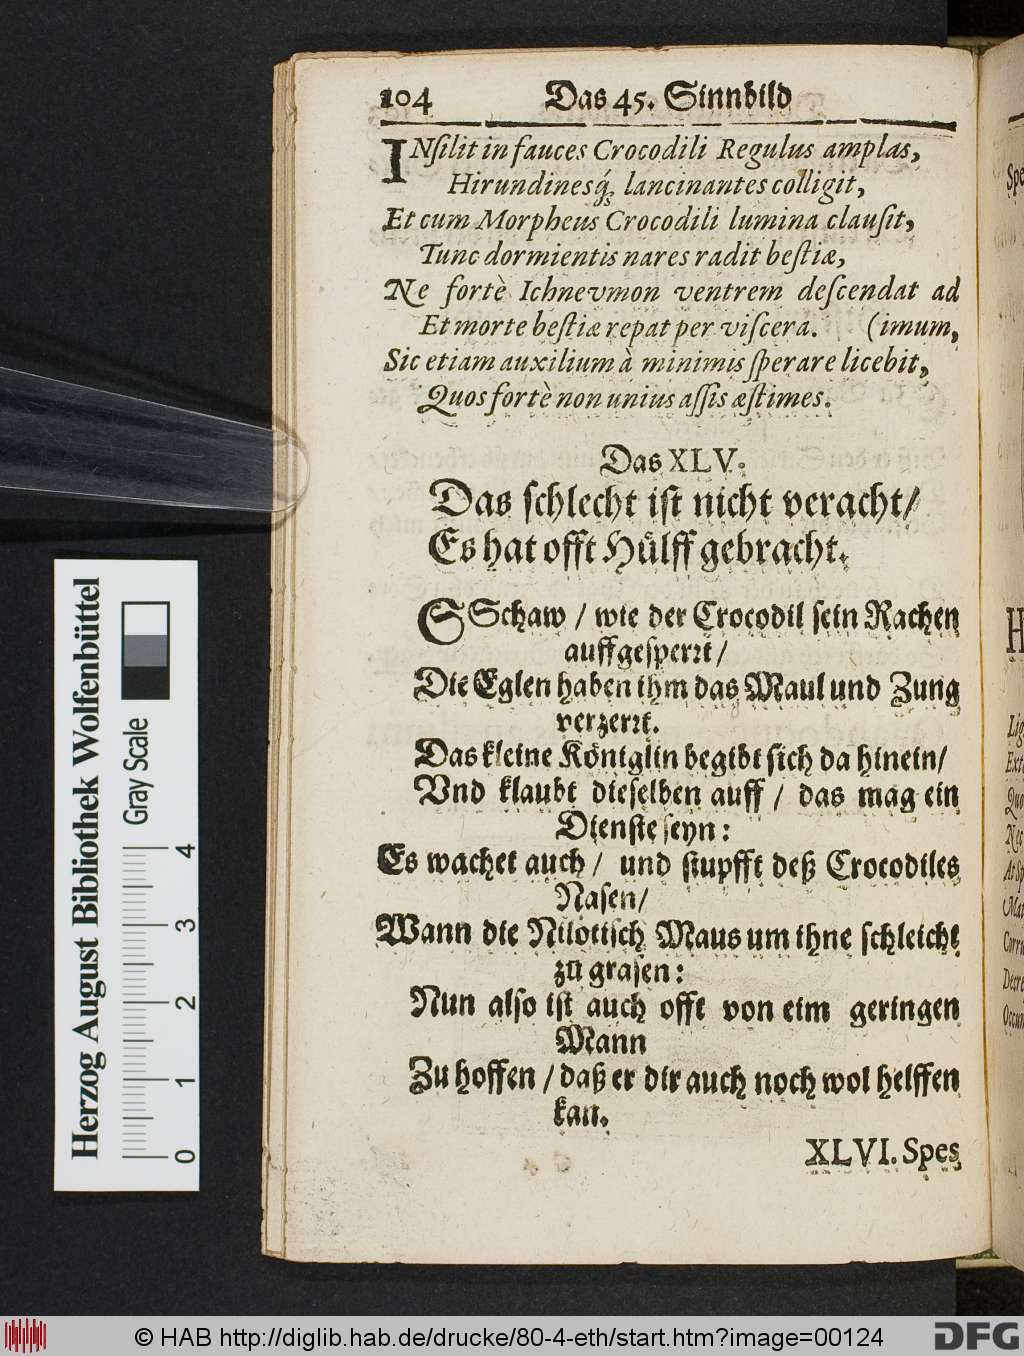 104 Das 45. Sinnbild
INſilit in fauces Crocodili Regulus amplas,
Hirundinesq́; lancinantes colligit,
Et cum Morpheus Crocodili lumina clauſit,
Tunc dormientis nares radit beſtiæ,
Ne fortè Ichneumon ventrem deſcendat ad
Et morte beſtiæ repat per viſcera. (imum,
Sic etiam auxilium à minimis ſperare licebit,
Quos fortè non unius aſſis æſtimes.
Das XLV.
Das ſchlecht iſt nicht veracht/
Es hat offt Hülff gebracht.
SSchaw / wie der Crocodil ſein Rachen
auffgeſperꝛt/
Die Eglen haben ihm das Maul und Zung
verzerꝛt.
Das kleine Königlin begibt ſich da hinein/
Vnd klaubt dieſelben auff / das mag ein
Dienſte ſeyn:
Es wachet auch / und ſtupfft deß Crocodiles
Naſen/
Wann die Nilotiſch Maus um ihne ſchleicht
zu graſen:
Nun alſo iſt auch offt von eim geringen
Mann
Zu hoffen / daß er dir auch noch wol helffen
kan.
XLVI. Spes
Herzog August Bibliothek Wolfenbüttel
Gray Scale
0 1 2 3 4
© HAB http://diglib.hab.de/drucke/80-4-eth/start.htm?image=00124
DFG